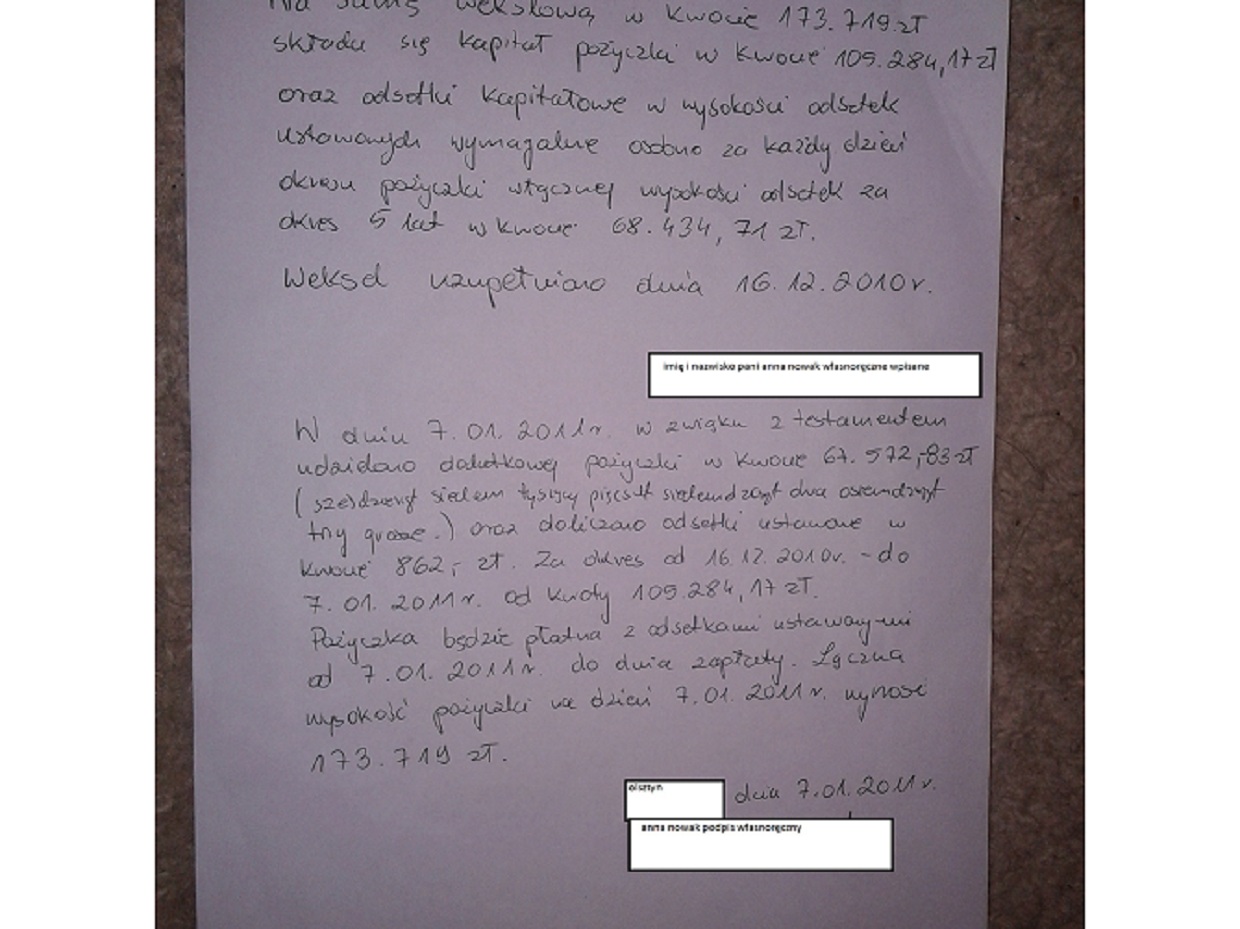 Na sumę wekslową w kwocie 173.719 zł
składa się kapitał pożyczki w kwocie 105.284,17 zł
oraz odsetki kapitałowe w wysokości odsetek
ustawowych wymagalne osobno za każdy dzień
okresu pożyczki włącznej wysokości odsetek za
okres 5 lat w kwocie 68.434,71 zł.
Weksel uzupełniono dnia 16.12.2010r.
imię i nazwisko pani anna nowak własnoręczne wpisane
W dniu 7.01.2011r. w związku z testamentem
udzielono dodatkowej pożyczki w kwocie 67.572,83 zł
(sześdziesiąt siedem tysięcy pięcset siedemdziesiąt dwa osiemdziesiąt
trzy grosze.) oraz doliczono odsetki ustawowe w
kwocie 862,- zł. Za okres od 16.12.2010r. - do
7.01.2011r. od kwoty 105.284,17 zł.
Pożyczka będzie płatna z odsetkami ustawowymi
od 7.01.2011r. do dnia zapłaty. Łączna
wysokość pożyczki na dzień 7.01.2011r. wynosi
173.719 zł.
olsztyn dnia 7.01.2011r.
anna nowak podpis własnoręczny